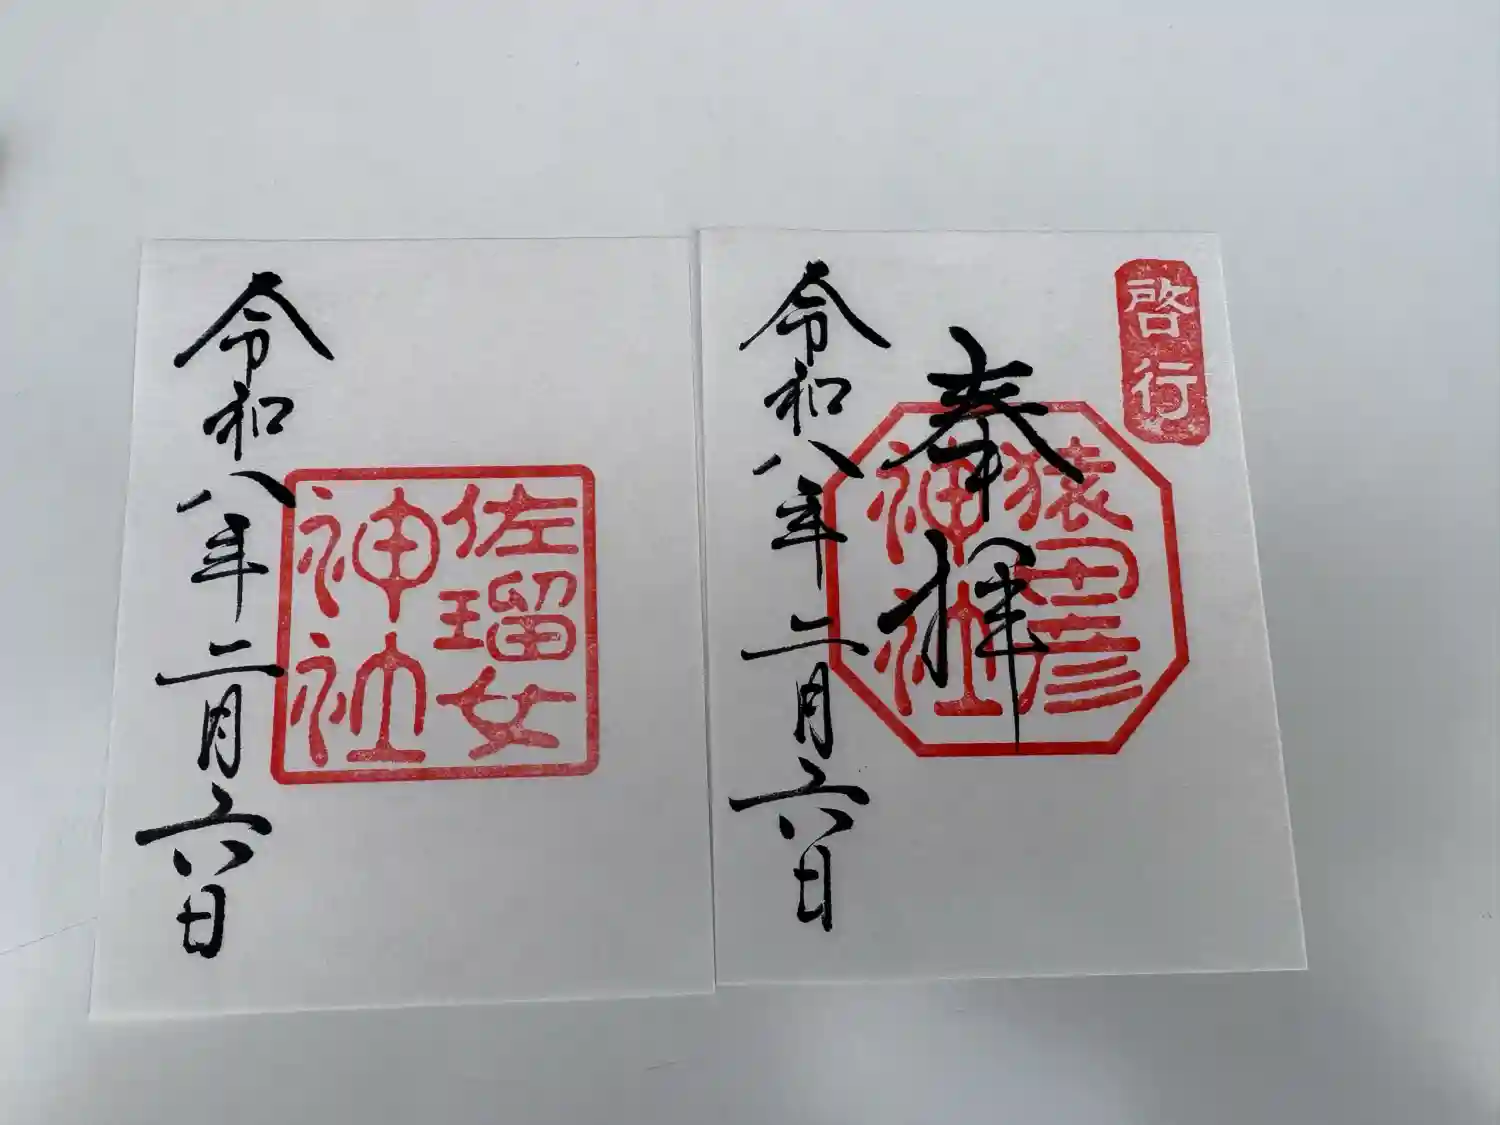 佐瑠女
神社
令和八年二月六日
啓行
奉拝
猿田彦
神社
令和八年二月六日